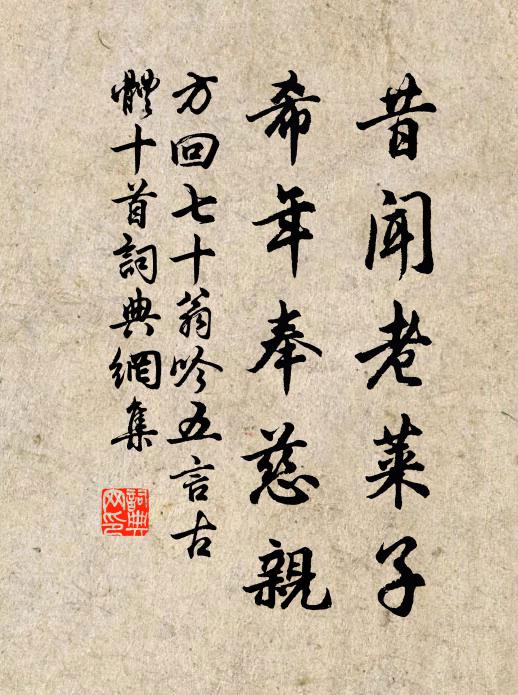 昔聞老萊子
希年奉慈親
方回七十翁吟五言古
體十首詞典網集
詞典网印